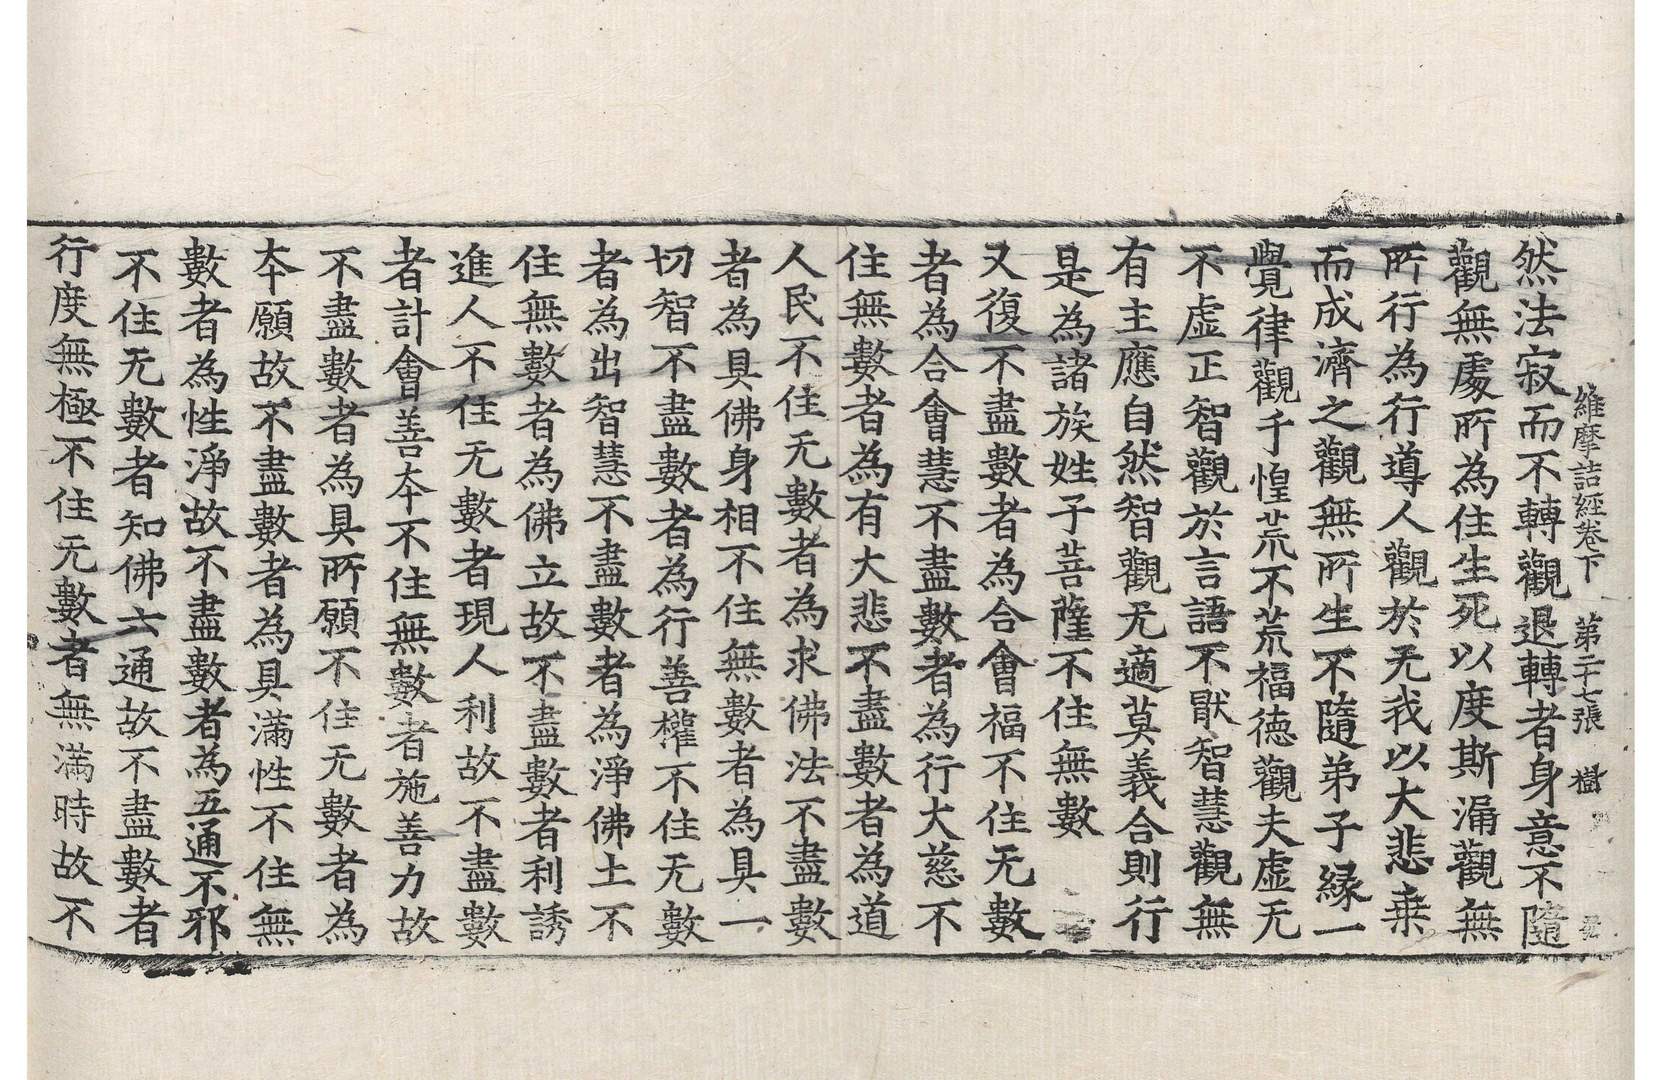 維摩詰經卷下 第二十七張 樹
然法寂而不轉觀退轉者身意不隨
觀無處所為住生死以度斯漏觀無
所行為行導人觀於无我以大悲乗
而成濟之觀無所生不隨弟子緣一
覺律觀千惶荒不荒福德觀夫虛无
不虛正智觀於言語不厭智慧觀無
有主應自然智觀无適莫義合則行
是為諸族姓子菩薩不住無數
又復不盡數者為合會福不住无數
者為合會慧不盡數者為行大慈不
住無數者為有大悲不盡數者為道
人民不住无數者為求佛法不盡數
者為具佛身相不住無數者為具一
切智不盡數者為行善權不住无數
者為出智慧不盡數者為淨佛土不
住無數者為佛立故不盡數者利誘
進人不住无數者現人利故不盡數
者計會善夲不住無數者施善力故
不盡數者為具所願不住无數者為
夲願故不盡數者為具滿性不住無
數者為性淨故不盡數者為五通不邪
不住无數者知佛六通故不盡數者
行度無極不住无數者無滿時故不